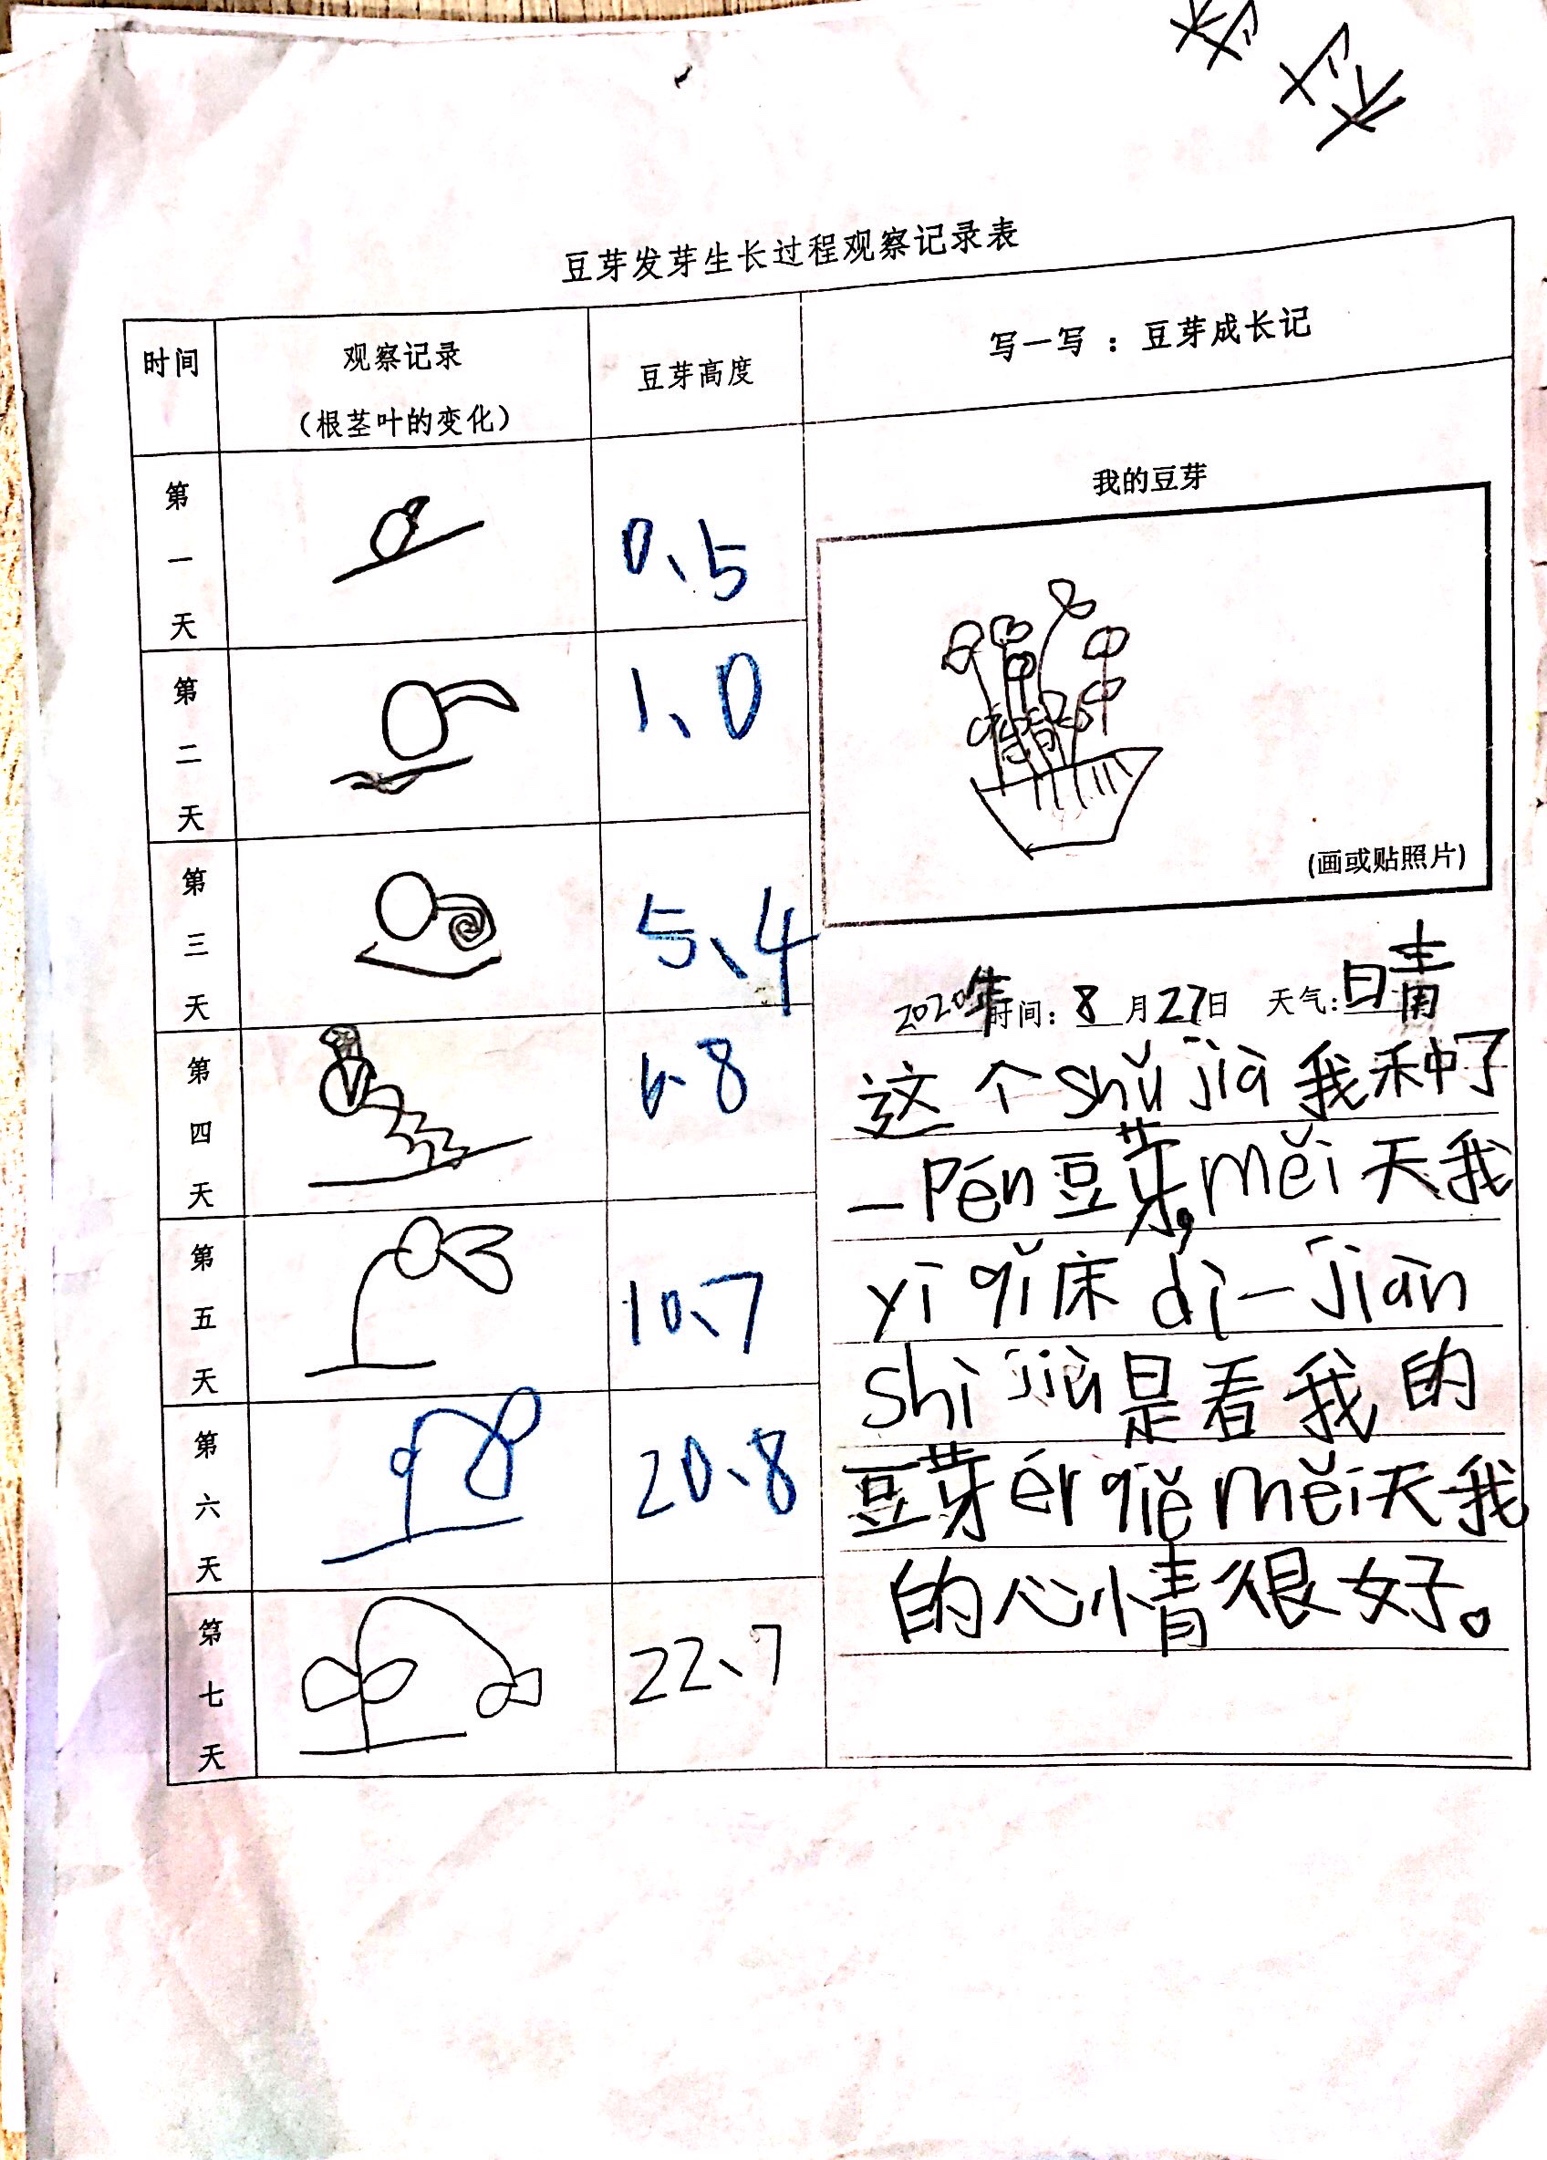 豆芽发芽生长过程观察记录表
时间
观察记录
（根茎叶的变化）
豆芽高度
写一写：豆芽成长记
第一天
0、5
第二天
1、0
第三天
5、4
第四天
第五天
10、7
第六天
20、8
第七天
22、7
我的豆芽
(画或贴照片)
2020年时间：8月27日 天气：晴
这个shǔ jià我种了
一Pén豆芽，měi天我
yī qǐ床dì一jiàn
shì jiù是看我的
豆芽ér qiě měi天我
的心情很好。